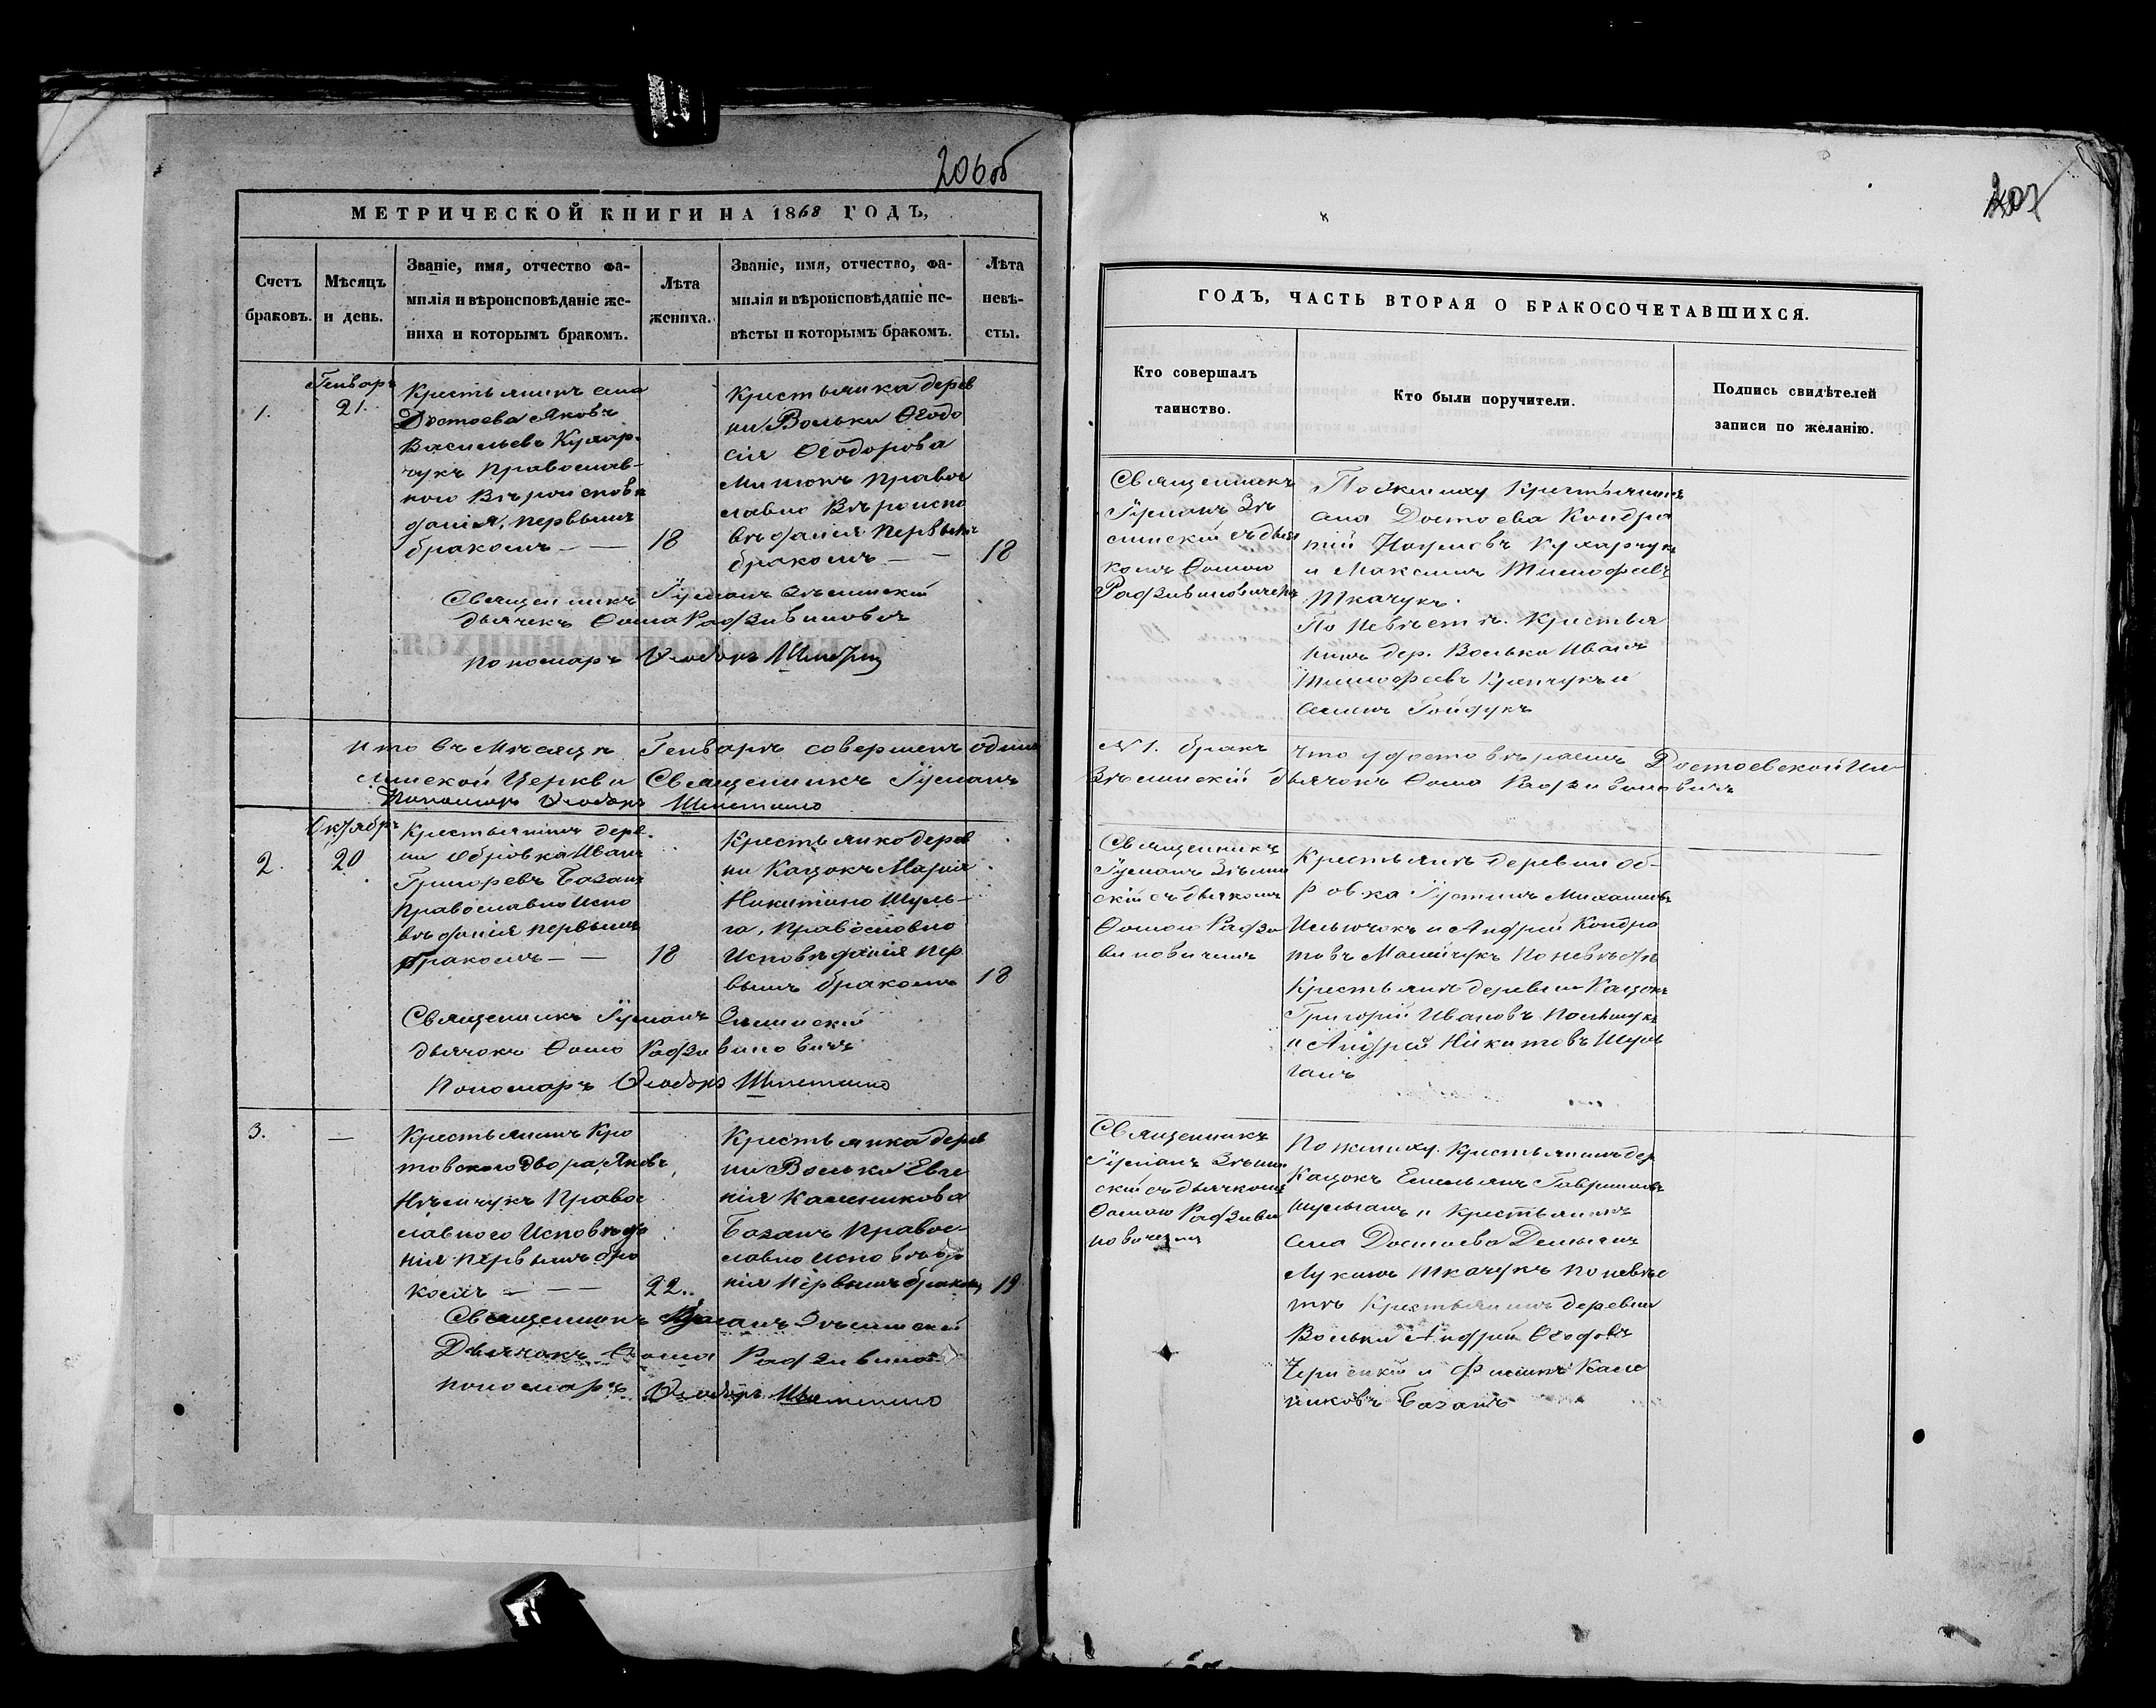 206об
МЕТРИЧЕСКОЙ КНИГИ НА 1868 ГОДЪ,
Счетъ
браковъ.
Мѣсяцъ
и день.
Званіе, имя, отчество фа-
милія и вѣроисповѣданіе же-
ниха и которымъ бракомъ.
Лѣта
жениха.
Званіе, имя, отчество, фа-
милія и вѣроисповѣданіе не-
вѣсты и которымъ бракомъ.
Лѣта
невѣ-
сты.
1.
Генваръ
21.
Крестьянинъ села
Достоева Яковъ
Васильевъ Кухар-
чукъ Православ-
ного Вѣроисповѣ
данія, первымъ
бракомъ — —
18
Крестьянка дерев
ни Вольки Ѳеодо
сія Ѳеодорова
правос
лавно Вѣроиспо
вѣданія первымъ
бракомъ —
18
Священникъ Гуліанъ Зѣлинскій
дьячекъ Ѳома Радзивиновичъ
пономаръ
Итто въ Мѣсяцѣ Генварѣ совершенъ одинъ
Церкви Священникъ Гуліанъ
Пономаръ
2.
Октябръ
20
Крестьянинъ дерев.
ни Обровка Иванъ
Григоревъ Базанъ
православно Испо
вѣданія первымъ
бракомъ — —
18
Крестьянко дерев
ни Кацокъ Марія
Никитино Шуль-
га, православно
Исповѣданія пер
вымъ бракомъ
18
Священникъ Гуліанъ Зѣлинскій
дьячокъ Ѳомо Радзивиновичъ
Пономаръ
3.
—
Крестьянинъ Кро
товского Двора, Яковъ
Нѣмчукъ Правос
лавного Исповѣда
нія первымъ бра
комъ — — —
22..
Крестьянка дерев
ни Вольки Евге
нія Калиникова
Базанъ правос-
лавно исповѣда
нія первымъ бракомъ
19
Священникъ Гуліанъ Зѣлинскій
Дьячокъ Ѳома
пономаръ
207
ГОДЪ, ЧАСТЬ ВТОРАЯ О БРАКОСОЧЕТАВШИХСЯ.
Кто совершалъ
таинство.
Кто были поручители.
Подпись свидѣтелей
записи по желанію.
Священникъ
Гуліанъ Зѣ
линскій съ дьяч
комъ Ѳомою
Радзивиновичемъ
По жениху Крестьянинъ
села Достоева Кондра
тій Наумовъ Кухарчукъ
и Максимъ Тимофеевъ
Ткачукъ.
По Невѣстѣ. Крестья
нинъ дер. Вольки Иванъ
Тимофеевъ и
Гойдукъ
№ 1. бракъ что удостовѣряемъ Достоевской Или
Зѣлинскій дьячокъ Ѳома Радзивиновичъ
Священникъ
Гуліанъ Зѣлин
скій съ дьякомъ
Ѳомою Радзи
виновичемъ
Крестьянъ деревни Об-
ровка Густинъ Михаиловъ
Ильючокъ и Андрей Кондра
товъ по невѣстѣ
Крестьянъ деревни Кацокъ
Григорій Ивановъ Полѣшукъ
и Андрей Никитовъ Шуль
ганъ
Священникъ
Гуліанъ Зѣлин
скій съ дьячкомъ
Ѳомою Радзиви
новичемъ
По жениху. Крестьянинъ дер
Кацокъ Емельянъ Гавриловъ
Шульганъ и Крестьянинъ
села Достоева Демьянъ
Лукинъ Ткачукъ по невѣс
тѣ Крестьянинъ деревни
Вольки Андрей
и Кали
никовъ Базанъ